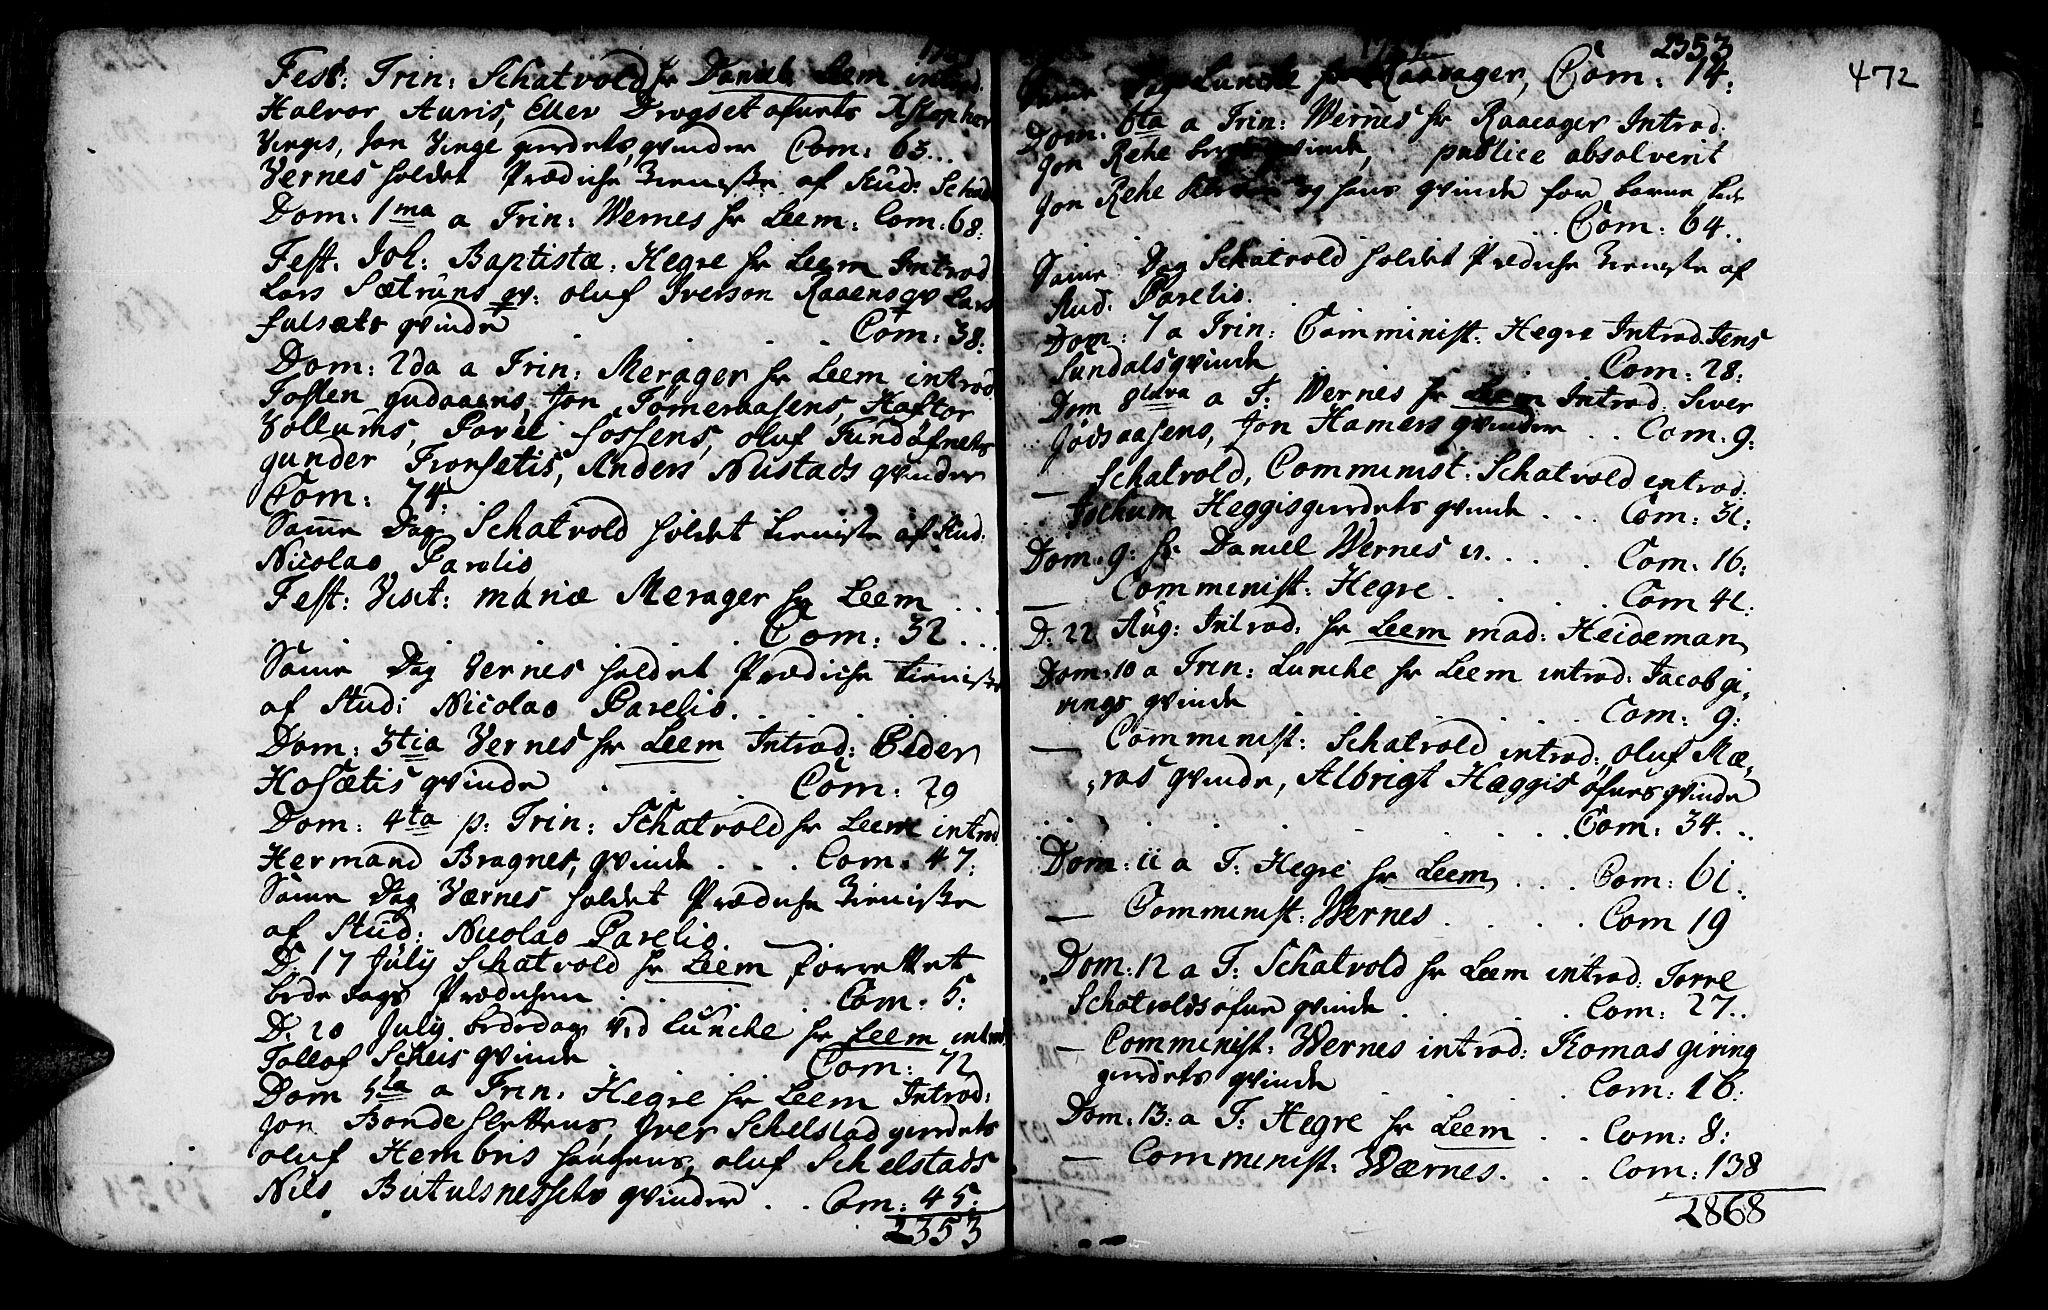 Fest: Trin: Schatvold hr Daniels Leem introd.
Halvor Auris, Eller Drogset ofuets
Vinges, Jon Vinge gierdets, qvinder Com: 63...
Vernes holdet Prædiche tienneste af Stud:
Dom: 1ma a Trin: Wernes hr Leem: Com: 68:
Fest. Joh: Baptistæ: Hegre hr Leem Introd
Lars Sætruns qv: oluf Iverson Raaens qv Lars
fulsæts qvinde . . Com: 38:
Dom: 2da a Trin: Merager hr Leem introd
Tosten gudaaens, Jon Tömeraasens, Haftor
Vollums, Povel fossens, oluf
gunder Fronsetis, Anders Nustads qvinder
Com: 74:
Samme Dag Schatvold holdet tieniste af Stud.
Nicolao Parelio
Fest: Visit: mariæ Merager hr Leem . . .
Com: 32 . . .
Same Dag Vernes holdet Prædiche tieniste
af Stud: Nicolao Parelio. . . . .
Dom: 3tia Vernes hr Leem Introd: Peder
Hofætis qvinde . . Com: 29
Dom: 4ta p: Trin: Schatvold hr Leem introd
Hermand Bragnes, qvinde . . . Com: 47:
Same Dag Værnes holdet Prædiche tieniste
af Stud: Nicolao Parelio.
D: 17 July Schatvold hr Leem forrettet
bede dags Prædichen . . . Com. 5:
D: 20 July bededag Ved Luncke hr Leem introd
Tollof Scheis qvinde . Com: 72
Dom 5ta a Trin: Hegre hr Leem Introd:
Jon Bonde slettens, Iver Schelstad gierdets
oluf Hembris haugens, oluf Schelstads
Nils qvinder . . Com: 45:
2353
2353
472
Same Dag Luncke hr Raaeager, Com: 14:
Dom: 6ta a Trin: Wernes hr Raaeager Introd.
Jon Rehe qvinde, publice absolverit
Jon Rehe og hans qvinde for
. . Com: 64 . .
Same Dag Schatvold holdet Prædiche tieniste af
Stud. Parelio. .
Dom: 7 a Trin: Comminist: Hegre Introd. Jens
Sundals qvinde . . Com: 28:
Dom 8tava a T: Wernes hr Leem Introd: Siver
Jödsaasens, Jon Hamers qvinder . . Com. 9:
— Schatvold, Comminist: Schatvold introd:
Jochum Heggisgierdets qvinde . . . Com: 31:
Dom: 9: hr Daniel Wernes . . . . Com: 16:
— Comminist: Hegre . . . . Com 41:
D: 22 Aug: Introd: hr Leem mad: Heideman
Dom: 10 a Trin: Luncke hr Leem introd: Jacob gi,
rings qvinde . . Com: 9:
— Comminist: Schatvold introd: oluf Mæ,
,ras qvinde, Albrigt Hæggis ofuers qvinde
. . . . . . . Com: 34. . .
Dom: 11 a T: Hegre hr Leem . . . Com: 61.
— Comminist: Wernes . . . . Com 19
Dom: 12 a T: Schatvold hr Leem introd: Torre
Schatvolds ofue qvinde . . . Com: 27..
— Comminist: Wernes introd: Tomas giring
gierdets qvinde . Com: 16:
Dom: 13: a T: Hegre hr Leem . . Com: 8:
— Comminist: Wærnes. . . Com: 138
2868